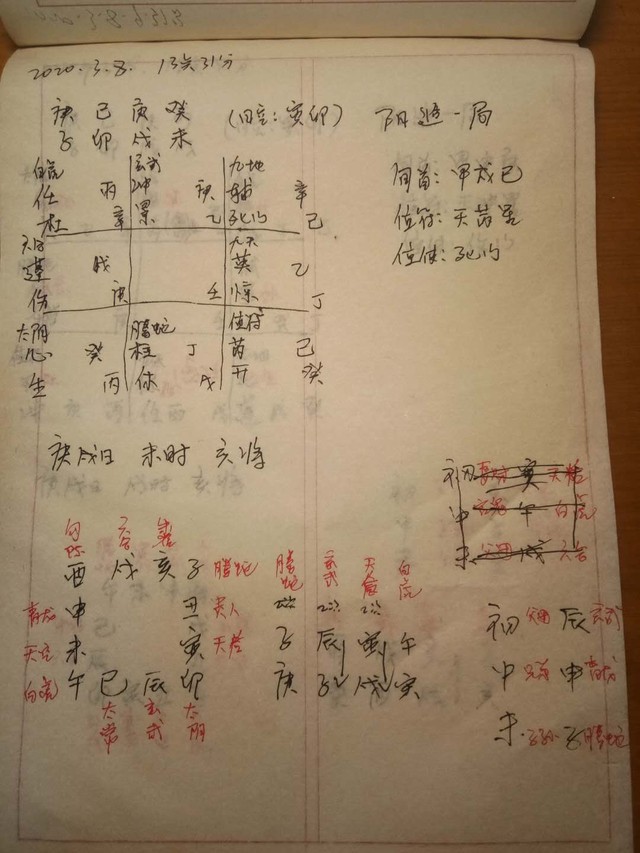 2020.3.8. 13点31分
庚 己 庚 癸 (日空:寅卯) 阳遁一局
子 卯 戌 未
旬首:甲戌己
值符:天芮星
值使:死门
白虎 玄武 九地
任 丙 冲 庚 辅 辛
杜 辛 景 乙 死门 己
九天
蓬 戊 英 乙
伤 庚 壬 惊 丁
太阴 螣蛇 值符
心 癸 柱 丁 芮 己
生 丙 休 戊 开 癸
庚戌日 未时 亥将
初 青龙 寅 天后
中 午 白虎
末 父母 戌 六合
勾陈 六合 朱雀
酉 戌 亥 子 螣蛇 螣蛇 玄武 天后 白虎
青龙 申 丑 贵人 子 辰 寅 午
天空 未 寅 天后 庚 子 戌 寅
白虎 午 巳 辰 卯
太常 玄武 太阴
初 父母 辰 玄武
中 兄弟 申 青龙
末 子孙 子 螣蛇